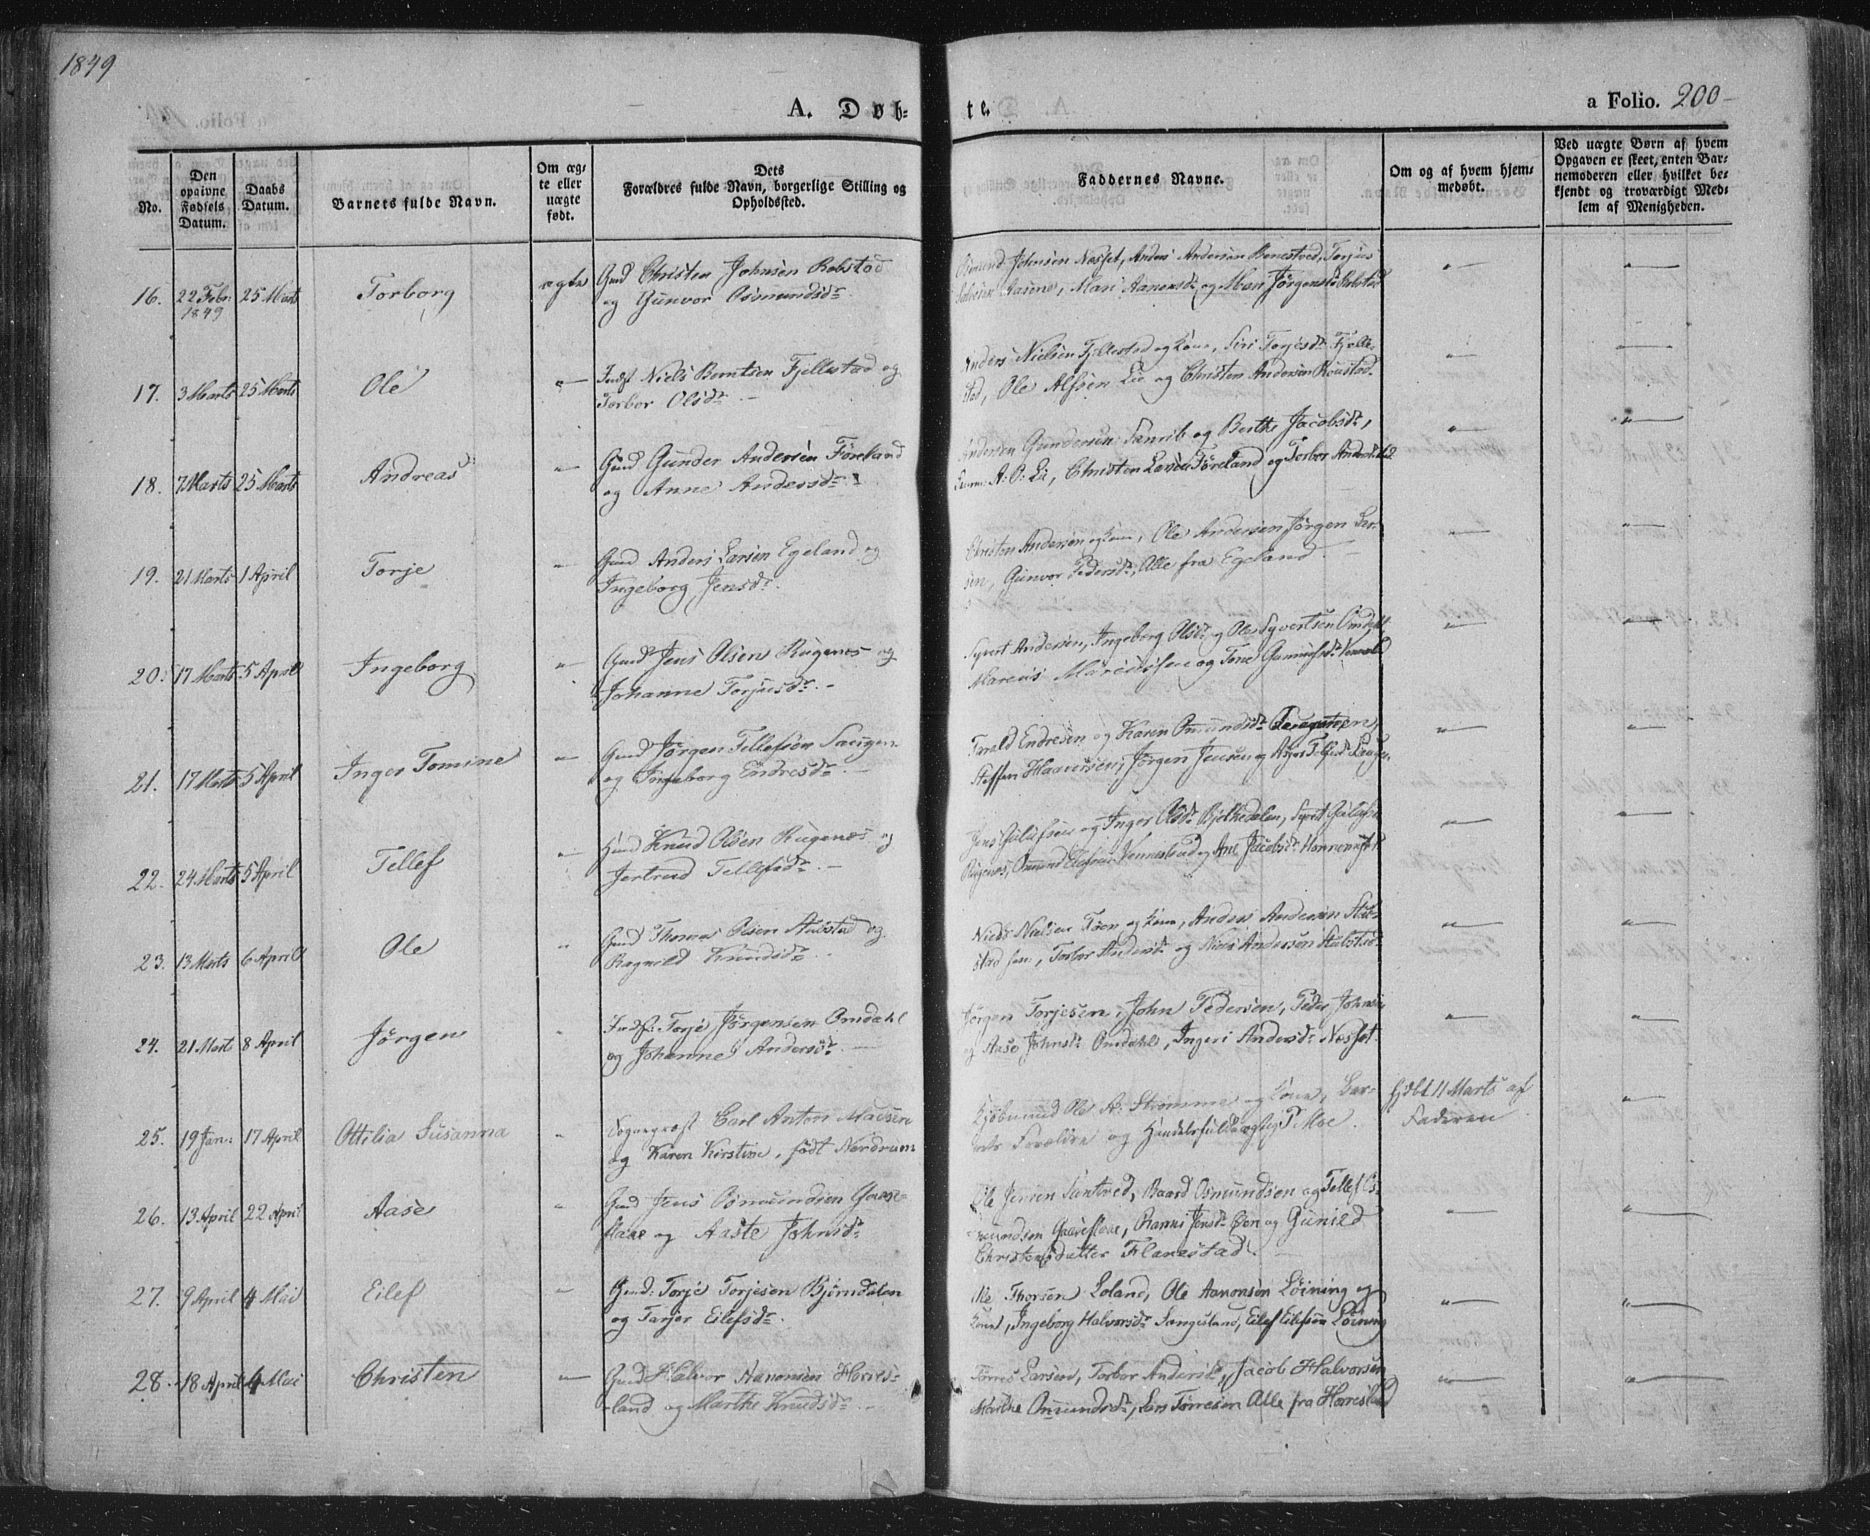 1849
A. Døb- te.
a Folio. 200
No.
Den opgivne Fødsels Datum.
Daabs Datum.
Barnets fulde Navn.
Om ægte eller uægte født.
Dets Forældres fulde Navn, borgerlige Stilling og Opholdsted.
Faddernes Navne.
Om og af hvem hjemmedøbt.
Ved uægte Børn af hvem Opgaven er skeet, enten Barnemoderen eller hvilket bekjendt og troværdigt Medlem af Menigheden.
16. 22 Febr. 1849 25 Marts Torborg ægte Gmd Christen Johnsen Robstad
og Gunvor Osmundsdr.
Osmund Johnsen Nøsset, Anders Andersen Bonestved, Torjus
Salvesen Aasene, Mari Aanensdr og Mari Jörgensdr Robstad
17. 3 Marts 25 Marts Ole " Indst Niels Berntsen Fjellestad og
Torbor Olsdr. -
Anders Nielsen Fjellestad og Kone, Siri Torjesdr Fjelle-
stad, Ole Alfsen Lie og Christen Andersen Roustad
18. 7 Marts 25 Marts Andreas " Gmd Gunder Andersen Föreland
og Anne Andersdr
Andersen Gundersen og Berthe Jacobsdr,
A. P. Lie, Christen Larsen Föreland og Torbor Andersdr
19. 21 Marts 1 April Torje " Gmd Anders Larsen Egeland og
Ingeborg Jensdr.
Christen Andersen og Kone, Ole Andersen, Jørgen Lar-
sen, Gunvor Pedersdr, Alle fra Egeland. -
20. 17 Marts 5 April Ingeborg " Gmd Jens Olsen Rugenes og
Johanne Torjusdr. -
Syvert Andersen, Ingeborg Olsdr og Ole Syvertsen Omdahl,
Marcus og Tone
21. 17 Marts 5 April Inger Tomine " Gmd Jørgen Tellefsen
og Ingeborg Endresdr. -
Endresen og Karen Omundsdr
Steffen Haaversen, Jørgen Jensen og
22. 24 Marts 5 April Tellef " Gmd Knud Olsen Rugenes og
Jertrud Tellefsdr. -
Jens og Inger Olsdr Bjelkedalen, Syvert
Rugenes, Omund og Ane Jacobsdr
23. 13 Marts 6 April Ole " Gmd Thomas Olsen Stubstad og
Ragnild Knudsdr
Niels Nielsen Töen og Kone, Anders Andersen Stub-
stad sen., Torbor Andersdr og Niels Andersen Stubstad
24. 21 Marts 8 April Jörgen " Indst: Torje Jörgensen Omdahl
og Johanne Andersdr. -
Jörgen Torjesen, John Pedersen, Peder Johnsen
og Aase Johnsdr Omdahl, Ingeri Andersdr Nøsset.
25. 19 Jan: 17 April Ottilia Susanna " Sognepræst Carl Anton
og Karen Kirstine, født Nordrum
Kjöbmand Ole A: Stromme og Kone, Bar-
nets Forældre og Handelsfuldmægtig P Moe.
Hjdbt 11 Marts af
Faderen
26. 13 April 22 April Aase " Gmd Jens Osmundsen
og Aaste Johnsdr
Ole Jensen Santved, Baard Osmundsen og Tellef Os-
mundsen, Jensdr Øen og Gunild
Christensdatter Flanestad. -
27. 9 April 4 Mai Eilef " Gmd: Torje Torjesen Bjørndalen
og Tarjer Eilefsdr.
Ole Thorsen Loland, Ole Aanonsen Løining og
Kone, Ingeborg Halvorsdr, Eilef Eilefsen Løining
28. 18 April 4 Mai Christen " Gmd Halvor Aanonsen Horris-
land og Marthe Knudsdr. -
Tørres Larsen, Torbor Andersdr, Jacob Halvorsen
Marthe Omundsdr, Lars Tørresen Alle fra Horrisland